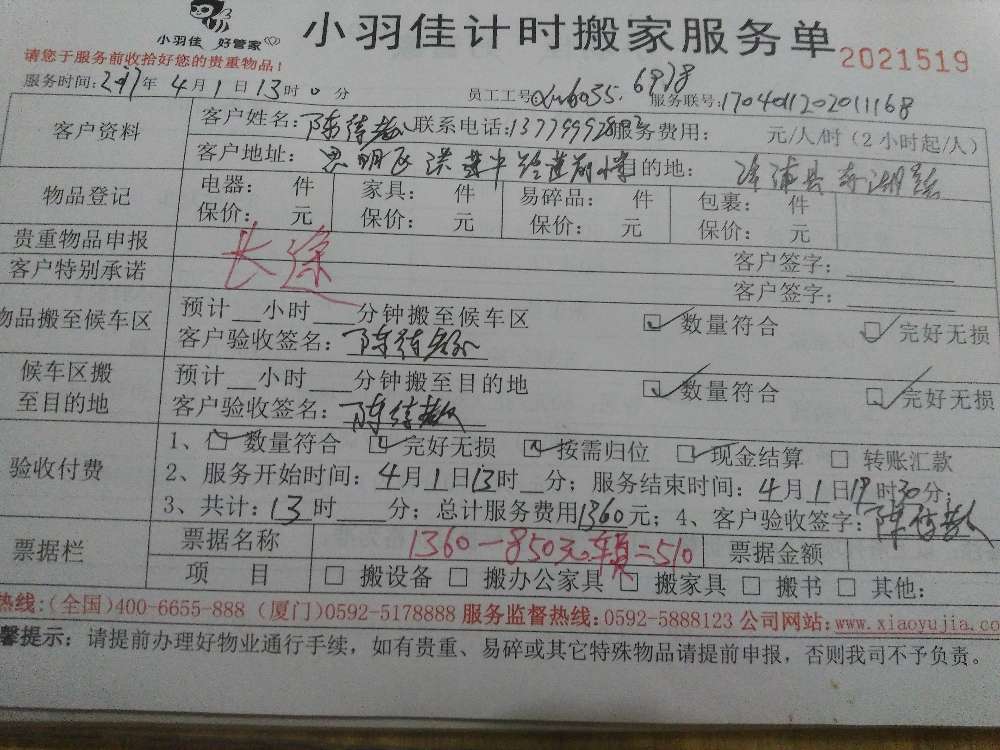 小羽佳 好管家
小羽佳计时搬家服务单
2021519
请您于服务前收拾好您的贵重物品！
服务时间：2017年4月1日13时0分 员工工号：6035. 6978 服务联号：1704011202011168
客户资料
客户姓名： 联系电话： 服务费用： 元/人/时（2小时起/人）
客户地址：思明区 目的地：漳浦县
物品登记
电器： 件 家具： 件 易碎品： 件 包裹： 件
保价： 元 保价： 元 保价： 元 保价： 元
贵重物品申报 长途 客户签字：
客户特别承诺 客户签字：
物品搬至候车区
预计__小时___分钟搬至候车区 ☑ 数量符合 ☑ 完好无损
客户验收签名：
候车区搬至目的地
预计__小时___分钟搬至目的地 ☑ 数量符合 ☑ 完好无损
客户验收签名：
验收付费
1、☑ 数量符合 ☑ 完好无损 ☑ 按需归位 ☑ 现金结算 □ 转账汇款
2、服务开始时间：4月1日13时__分；服务结束时间：4月1日19时30分；
3、共计：13时____分；总计服务费用1360元；4、客户验收签字：
票据栏
票据名称 1360-850元 =510 票据金额
项 目 □ 搬设备 □ 搬办公家具 □ 搬家具 □ 搬书 □ 其他：
热线：(全国)400-6655-888 (厦门)0592-5178888 服务监督热线：0592-5888123 公司网站：www.xiaoyujia.co
馨提示：请提前办理好物业通行手续，如有贵重、易碎或其它特殊物品请提前申报，否则我司不予负责。